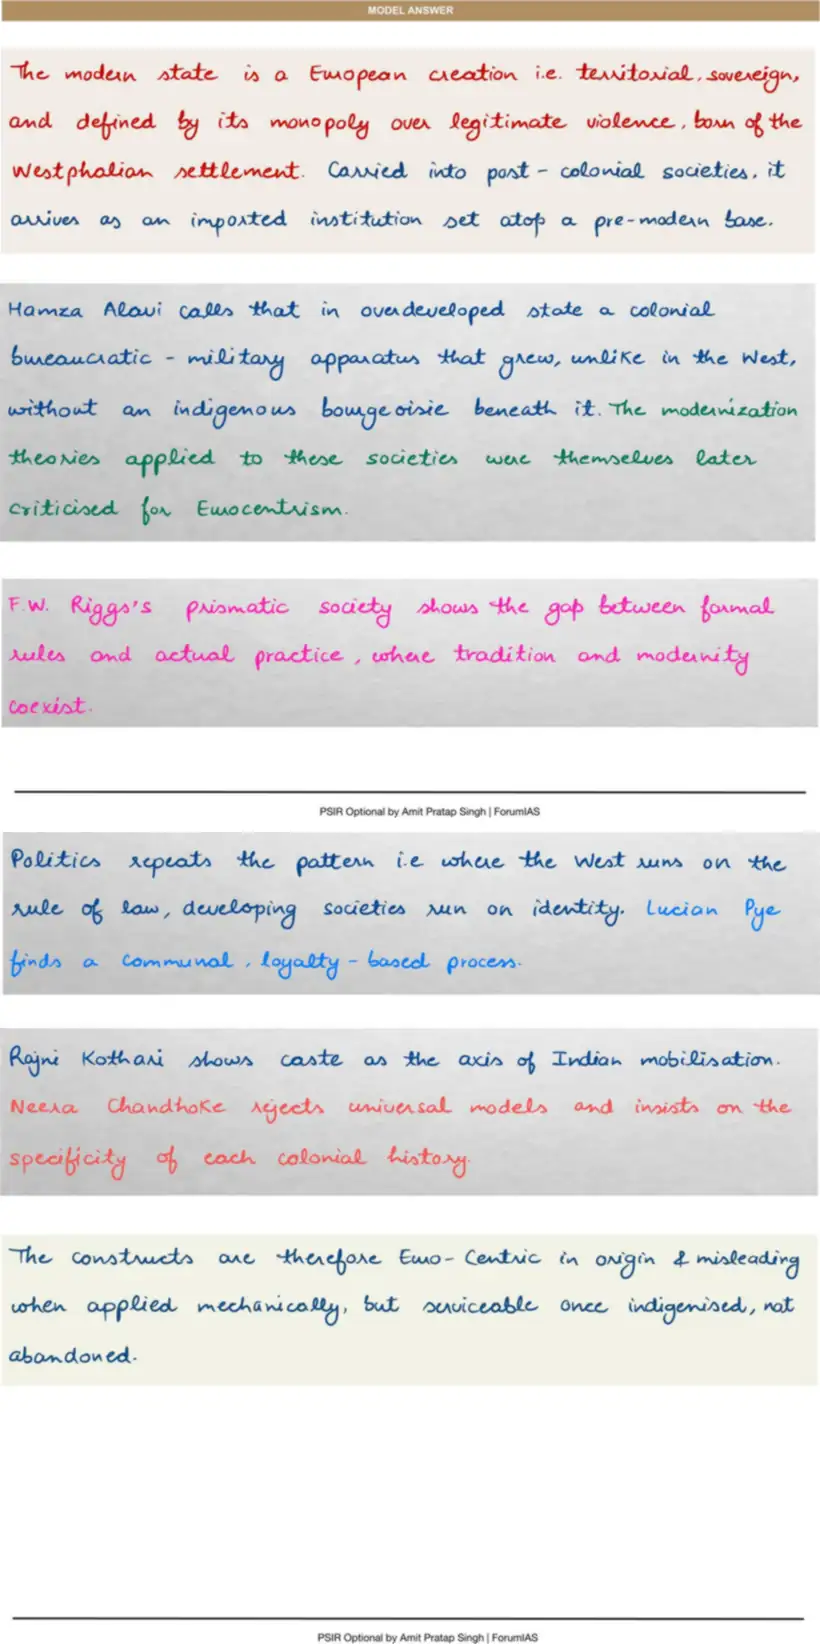 MODEL ANSWER
The modern state is a European creation i.e. territorial, sovereign,
and defined by its monopoly over legitimate violence, born of the
Westphalian settlement. Carried into post - colonial societies, it
arrives as an imported institution set atop a pre-modern base.
Hamza Alavi calls that in overdeveloped state a colonial
bureaucratic - military apparatus that grew, unlike in the West,
without an indigenous bourgeoisie beneath it. The modernization
theories applied to these societies were themselves later
criticised for Eurocentrism.
F.W. Riggs's prismatic society shows the gap between formal
rules and actual practice, where tradition and modernity
coexist.
PSIR Optional by Amit Pratap Singh | ForumIAS
Politics repeats the pattern i.e where the West runs on the
rule of law, developing societies run on identity. Lucian Pye
finds a communal, loyalty - based process.
Rajni Kothari shows caste as the axis of Indian mobilisation.
Neera Chandhoke rejects universal models and insists on the
specificity of each colonial history.
The constructs are therefore Euro - Centric in origin & misleading
when applied mechanically, but serviceable once indigenised, not
abandoned.
PSIR Optional by Amit Pratap Singh | ForumIAS